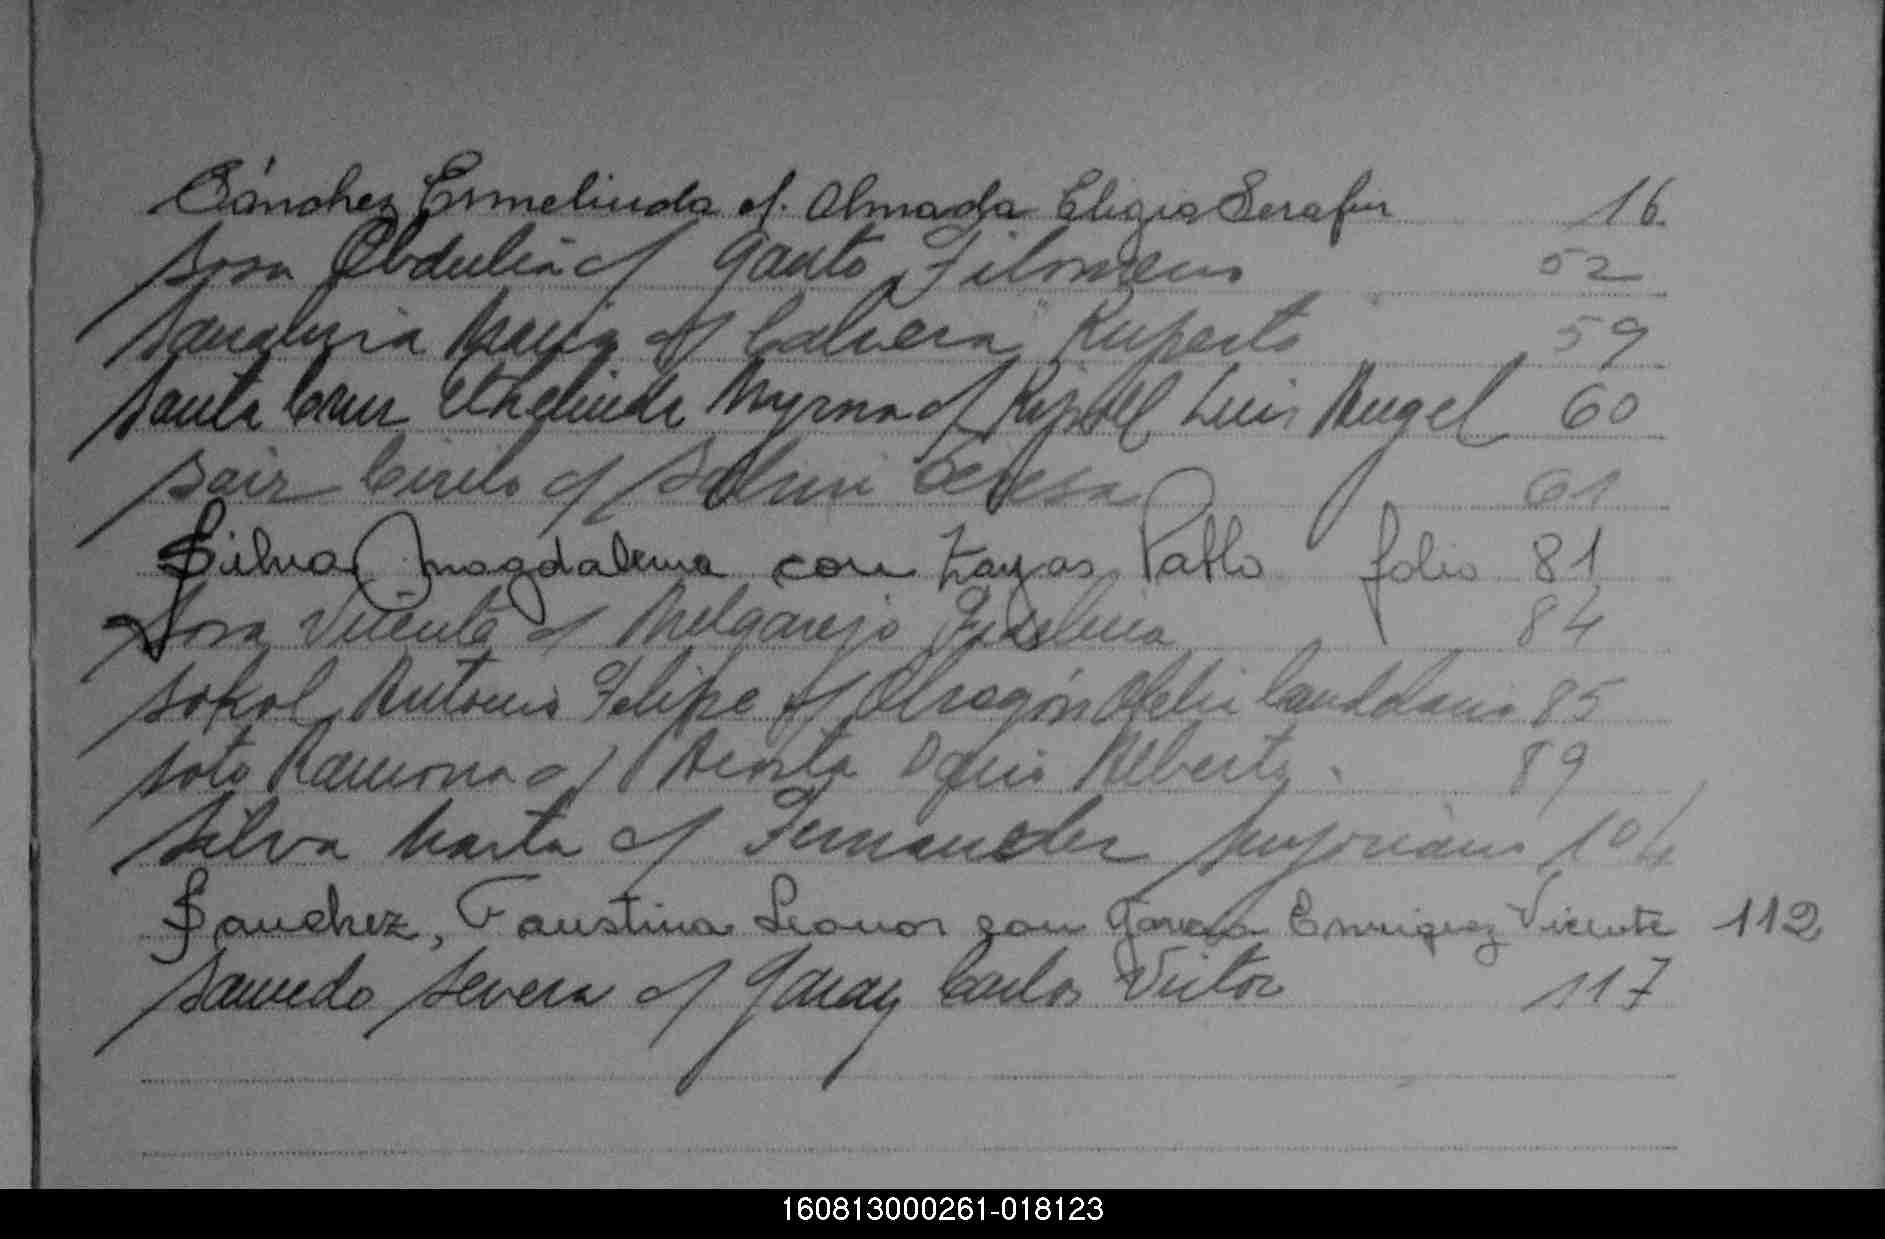 Sánchez Ermelinda c/. Almada Eligio Serafin 16
Sosa Obdulia c/ Gauto Filomeno 52
Sanabria María c/ Cabrera Ruperto 59
Santa Cruz Ethelinda Myrna c/ Luis Angel 60
Saiz Cirilo c/ Teresa 61
Silva Magdalena con Zayas Pablo folio 81
Sosa Vicente c/ Melgarejo 84
Sokol Antonio Felipe c/ Aragón 85
Soto Ramona c/ Acosta Alberto. 89
Silva Marta c/ Fernandez 104
Sanchez, Faustina Leonor con Enrique Vicente 112
Severa c/ Garay Carlos Victor 117
160813000261-018123